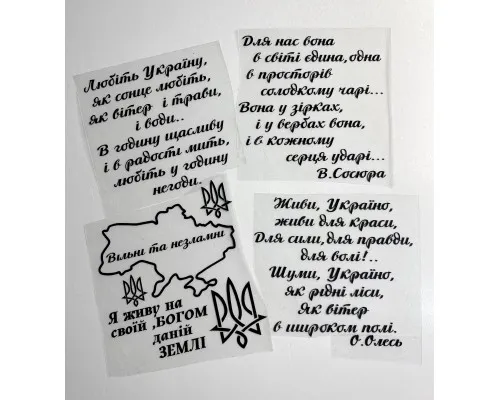 Любіть Україну,
як сонце любіть,
як вітер і трави,
і води..
В годину щасливу
і в радості мить,
любіть у годину
негоди.
Для нас вона
в світі єдина, одна
в просторів
солодкому чарі...
Вона у зірках,
і у вербах вона,
і в кожному
серця ударі...
В.Сосюра
Вільні та незламні
Я живу на
своїй ,БОГОМ
даній
ЗЕМЛІ
Живи, Україно,
живи для краси,
Для сили, для правди,
для волі!..
Шуми, Україно,
як рідні ліси,
Як вітер
в широком полі.
О.Олесь